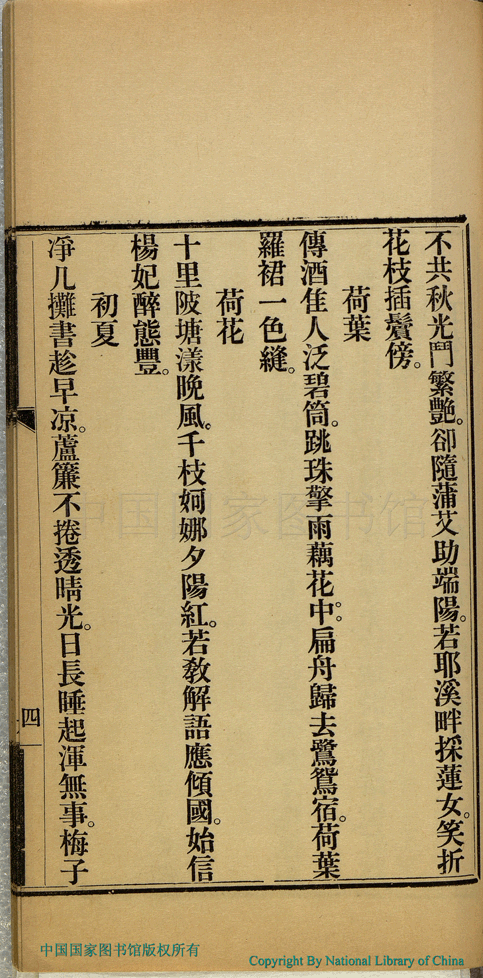 不共秋光鬥繁艷。卻隨蒲艾助端陽。若耶溪畔採蓮女。笑折
花枝插鬢傍。
荷葉
傳酒隹人泛碧筒。跳珠擎雨藕花中。扁舟歸去鷺鴛宿。荷葉
羅裙一色縫。
荷花
十里陂塘漾晚風。千枝婀娜夕陽紅。若教解語應傾國。始信
楊妃醉態豐。
初夏
凈几攤書趁早凉。蘆簾不捲透晴光。日長睡起渾無事。梅子
四
中国国家图书馆
中国国家图书馆版权所有
Copyright By National Library of China